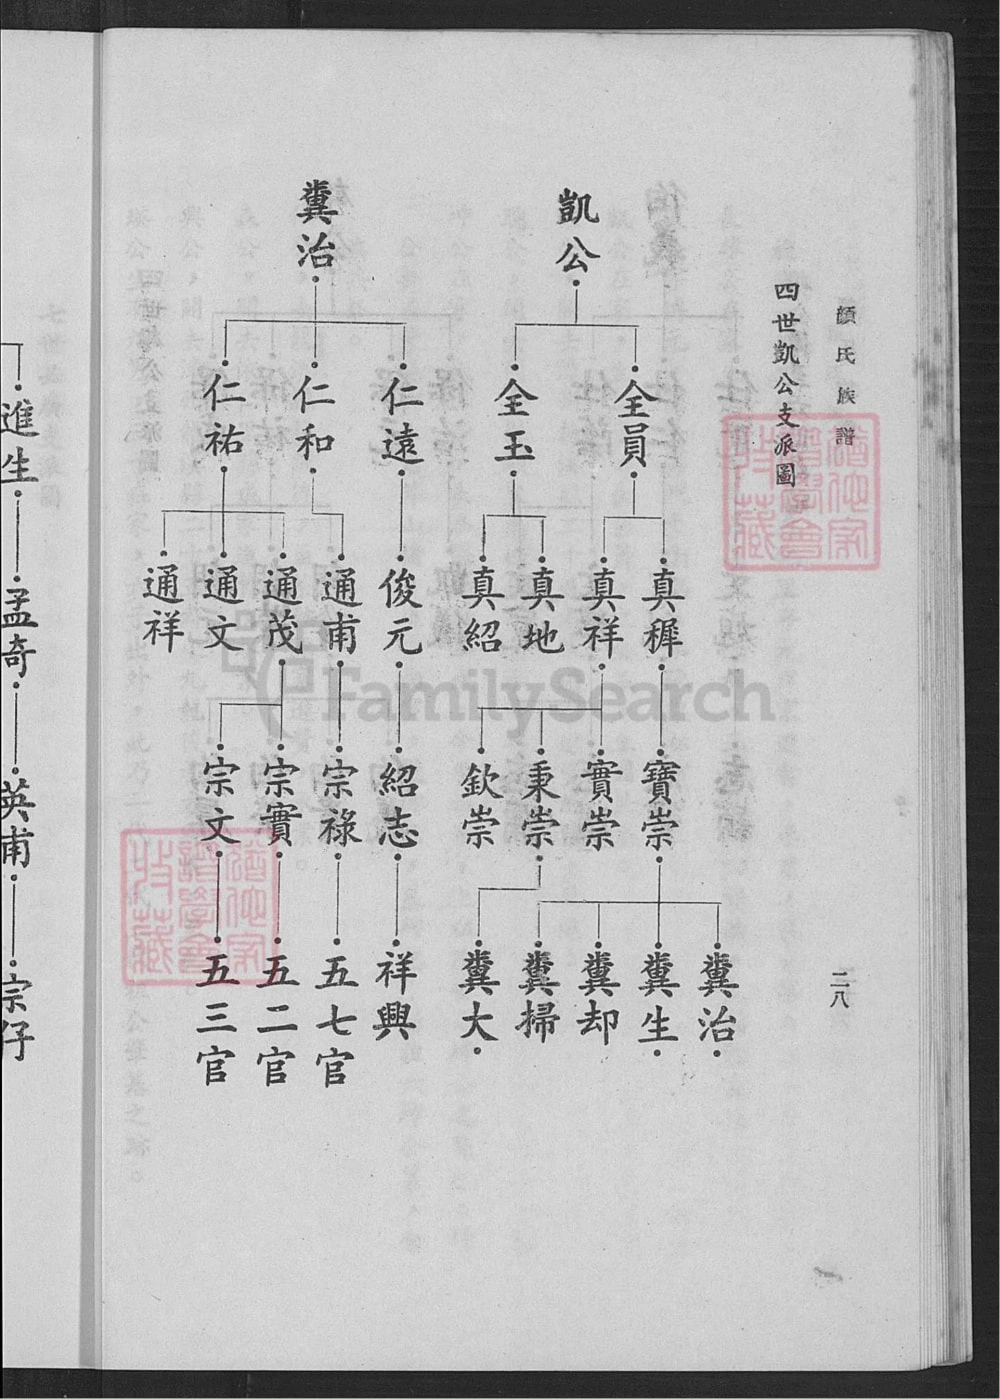 顏氏族譜
二八
四世凱公支派圖
凱公
全員
全玉
真穉
真祥
真地
真紹
寶崇
實崇
秉崇
欽崇
糞治
糞生
糞却
糞掃
糞大
糞治
仁遠
仁和
仁祐
俊元
通甫
通茂
通文
通祥
紹志
宗祿
宗實
宗文
祥興
五七官
五二官
五三官
進生
孟奇
英甫
宗仔
FamilySearch